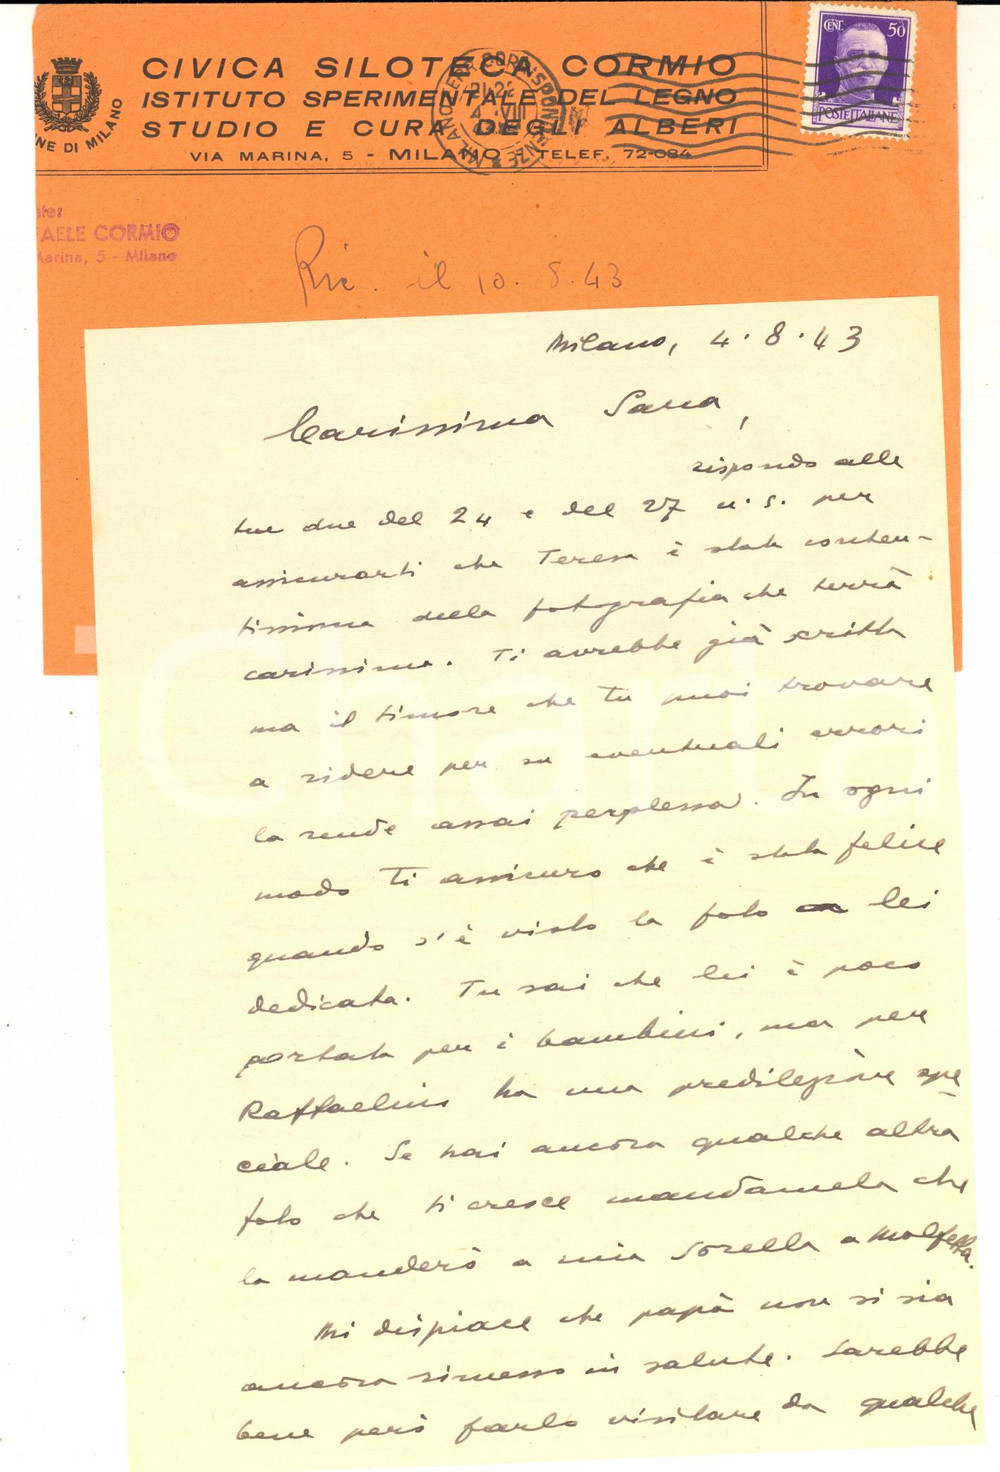 CIVICA SILOTECA CORMIO
ISTITUTO SPERIMENTALE DEL LEGNO
STUDIO E CURA DEGLI ALBERI
VIA MARINA, 5 - MILANO - TELEF. 72-084
NE DI MILANO
CENT. 50
POSTE ITALIANE
AELE CORMIO
arina, 5 - Milano
Ric. il 10.8.43
Milano, 4.8.43
Carissima Sara,
rispondo alle
tue due del 24 e del 27 u.s. per
assicurarti che Teresa è stata conten-
tissima della fotografia che terrà
carissima. Ti avrebbe già scritto
ma il timore che tu puoi trovare
a ridere per su eventuali errori
la rende assai perplessa. In ogni
modo Ti assicuro che è stata felice
quando s'è vista la foto a lei
dedicata. Tu sai che lei è poco
portata per i bambini, ma per
Raffaelino ha una predilezione spe
ciale. Se hai ancora qualche altra
foto che ti cresce mandamela che
la manderò a mia sorella a Molfetta.
Mi dispiace che papà non si sia
ancora rimesso in salute. Sarebbe
bene però farlo visitare da qualche
Charta